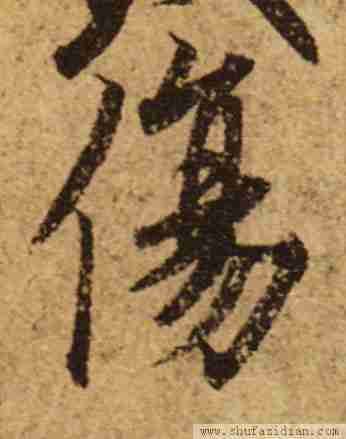 傷
www.shufazidian.com